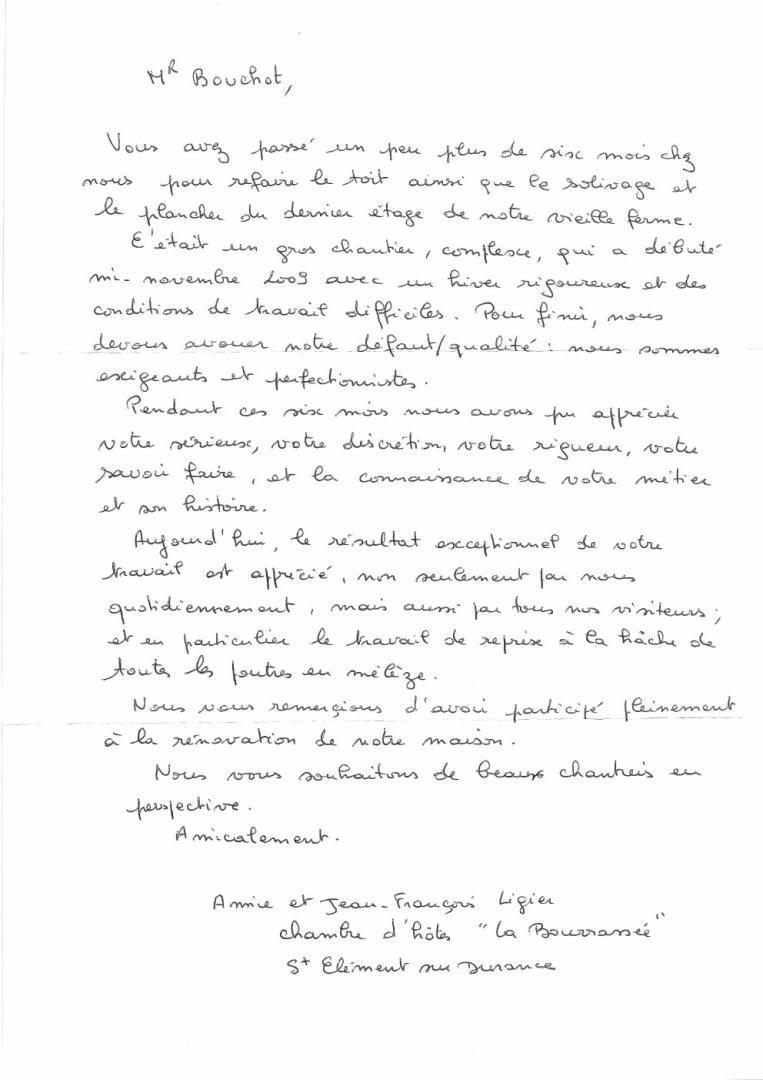 Mr Bouchot,
Vous avez passé un peu plus de six mois chez
nous pour refaire le toit ainsi que le solivage et
le plancher du dernier étage de notre vieille ferme.
C'était un gros chantier, complexe, qui a débuté
mi-novembre 2009 avec un hiver rigoureux et des
conditions de travail difficiles. Pour finir, nous
devons avouer notre défaut/qualité : nous sommes
exigeants et perfectionnistes.
Pendant ces six mois nous avons pu apprécier
votre sérieux, votre discrétion, votre rigueur, votre
savoir faire, et la connaissance de votre métier
et son histoire.
Aujourd'hui, le résultat exceptionnel de votre
travail est apprécié, non seulement par nous
quotidiennement, mais aussi par tous nos visiteurs ;
et en particulier le travail de reprise à la hâche de
toutes les poutres en mélèze.
Nous vous remerçions d'avoir participé pleinement
à la rénovation de notre maison.
Nous vous souhaitons de beaux chantiers en
perspective.
Amicalement.
Annie et Jean-François Ligier
chambre d'hôtes "la Bourrassée"
St Clément sur Durance